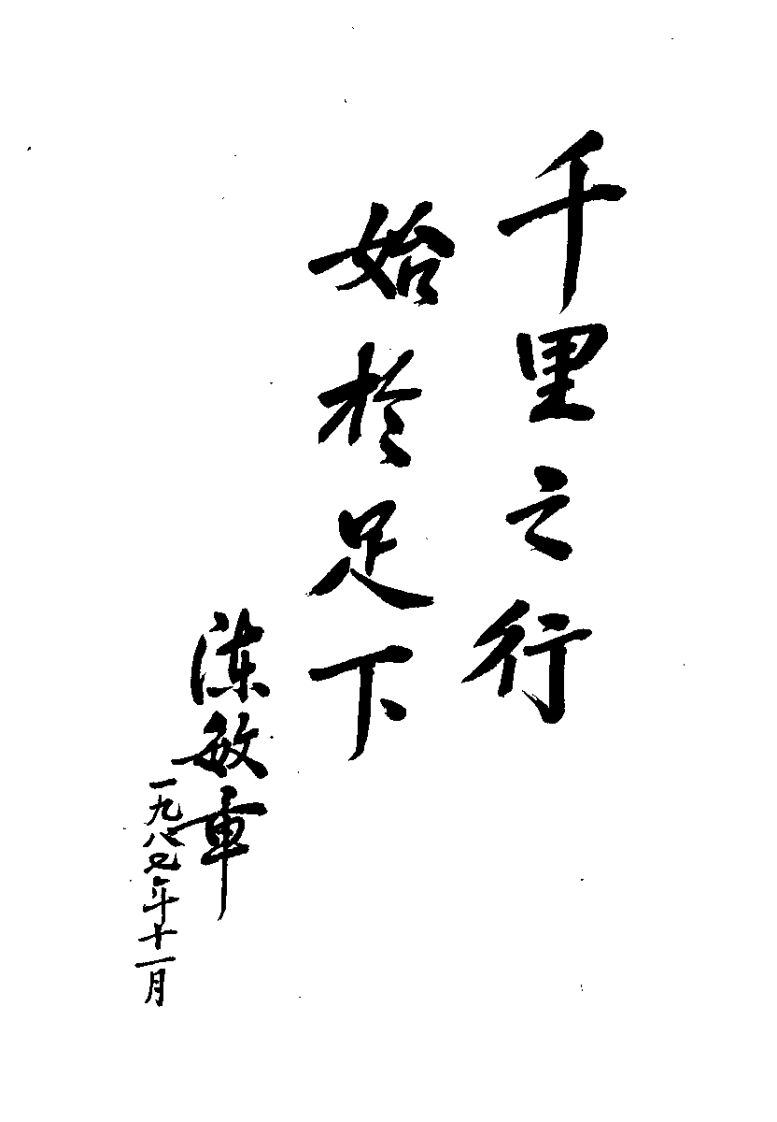 千里之行
始於足下
陈敏章
一九八九年十一月